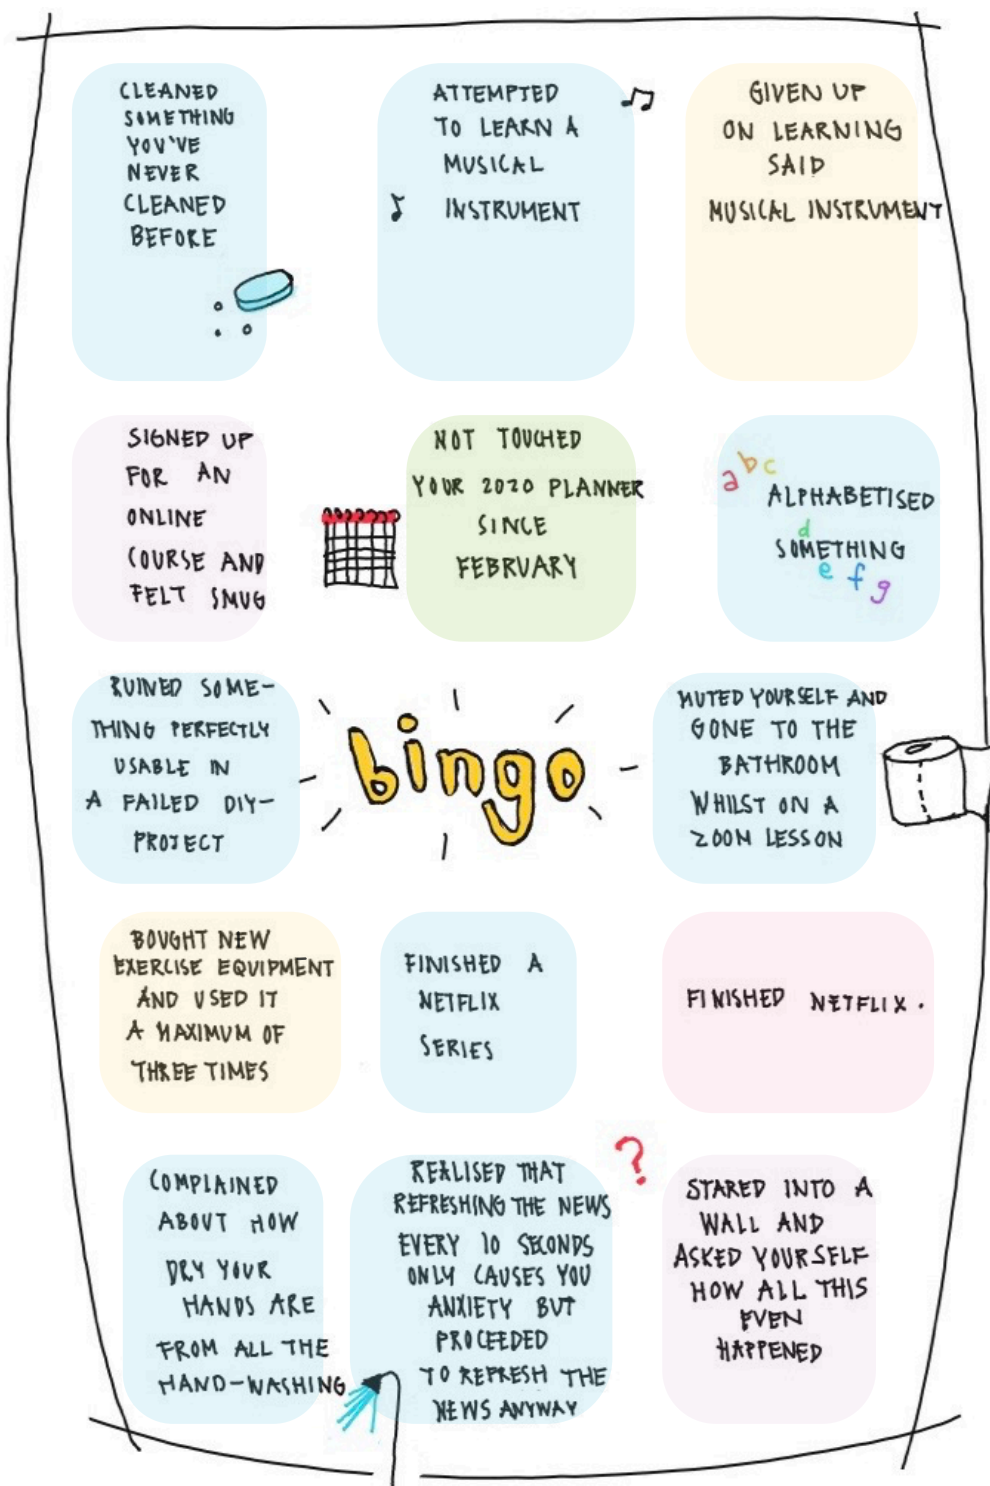 CLEANED
SOMETHING
YOU'VE
NEVER
CLEANED
BEFORE
ATTEMPTED
TO LEARN A
MUSICAL
INSTRUMENT
GIVEN UP
ON LEARNING
SAID
MUSICAL INSTRUMENT
SIGNED UP
FOR AN
ONLINE
COURSE AND
FELT SMUG
NOT TOUCHED
YOUR 2020 PLANNER
SINCE
FEBRUARY
a b c
ALPHABETISED
d
SOMETHING
e f g
RUINED SOME-
THING PERFECTLY
USABLE IN
A FAILED DIY-
PROJECT
bingo
MUTED YOURSELF AND
GONE TO THE
BATHROOM
WHILST ON A
ZOOM LESSON
BOUGHT NEW
EXERCISE EQUIPMENT
AND USED IT
A MAXIMUM OF
THREE TIMES
FINISHED A
NETFLIX
SERIES
FINISHED NETFLIX.
COMPLAINED
ABOUT HOW
DRY YOUR
HANDS ARE
FROM ALL THE
HAND-WASHING
REALISED THAT
REFRESHING THE NEWS
EVERY 10 SECONDS
ONLY CAUSES YOU
ANXIETY BUT
PROCEEDED
TO REFRESH THE
NEWS ANYWAY
?
STARED INTO A
WALL AND
ASKED YOURSELF
HOW ALL THIS
EVEN
HAPPENED